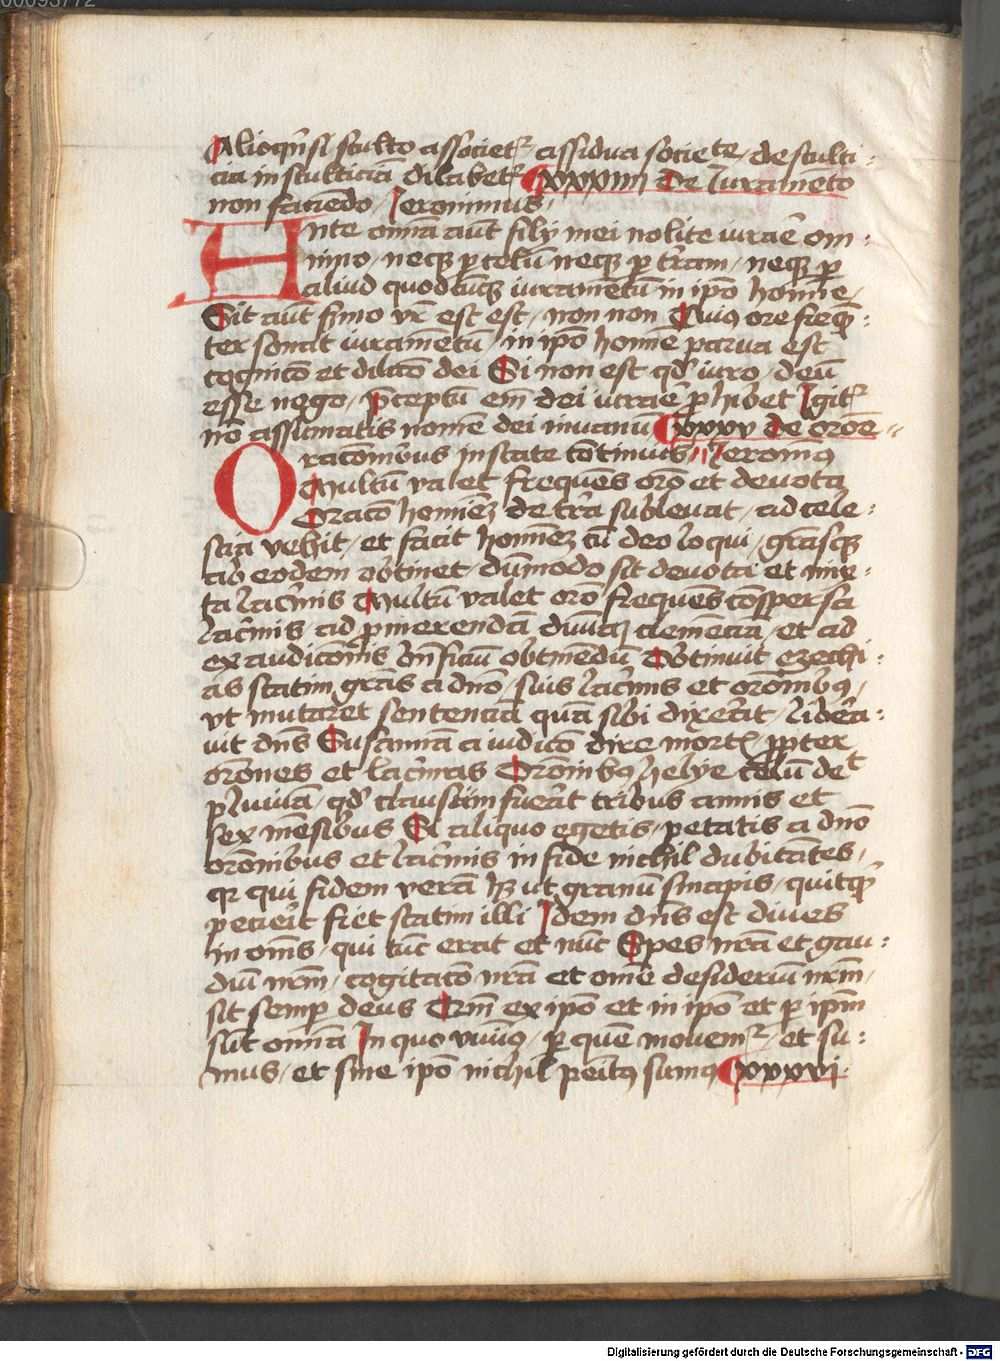 Alioqn̄ si stulto associet᷑ assidua societe, de stulti-
cia in stulticiā dilabet᷑ xxxiiij De Iuramento
non faciēdo, Ieronimus,
Ante omīa aūt filij mei nolite iurar̄e om-
nino, neqꝫ ꝑ celū neqꝫ ꝑ tr̄am, neqꝫ ꝑ
aliud quodcūqꝫ iuramētū in ip̄o hoīme,
Sit aūt s̄mo vr̄ est est, non non Cuiꝰ ore freqn̄-
ter sonat iuramētū, in ip̄o homīe parua est
cognic̄o et dilc̄o dei Si non est qd̓ iuro, deū
esse nego, p̄ceptū em̄ dei iurar̄e ꝑhibet Igit᷑
nō assumatis nomē dei in uanū xxxv De orōe
Orac̄onibus instate cōtinuis, Ieronimꝰ
Multū valet frequēs orō et deuota
Orac̄o homīeꝫ de tr̄a subleuat, ad cele-
stia vehit, et facit homīeꝫ cū deo loqui, gr̄asqꝫ
ab eodem obtinet, dūmodo sit deuota et mix-
ta lacr̄mis Multū valet orō frequēs cōspersa
lacr̄mis, ad ꝓmerendā diuinā clemēcia, et ad
exaudic̄onis bn̄ficiū obtinēdū Obtinuit ezechi-
as statim gr̄as a dn̄o, suis lacr̄mis et orōnibꝰ,
vt mutaret sentenciā quā sibi dixer̄at, libera-
uit dn̄s Susannā a iudic̄o dire mortꝭ ꝓpter
orōnes et lacr̄mas Orōnibꝰ helye celū det
pluuiā, qd̓ clausum fuer̄at tribus annis et
sex mēsibus Si aliquo egetis, petatis a dn̄o
orōnibus et lacr̄mis in fide nichil dubitātes,
qr qui fidem verā hꝫ ut granū sinapis, quitqd̓
pecier̄it fiet statim illi Idem dn̄s est diues
in om̄s, qui tūc erat et nūc Spes nr̄a et gau-
diū nr̄m, cogitac̄o nr̄a et omē desideriū nr̄m,
sit semꝑ deus Qm̄ ex ip̄o et in ip̄o et ꝑ ip̄m
sūt omīa In quo viuimꝰ, ꝑ quē mouem᷑, et su-
mus, et sine ip̄o nichil penitꝰ sumꝰ xxxvi
Digitalisierung gefördert durch die Deutsche Forschungsgemeinschaft - DFG